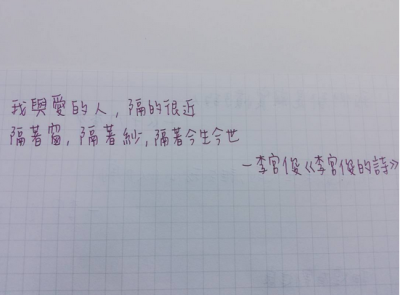 我與愛的人,隔的很近
隔著窗,隔著紗,隔著今生今世
–李宮俊《李宮俊的詩》